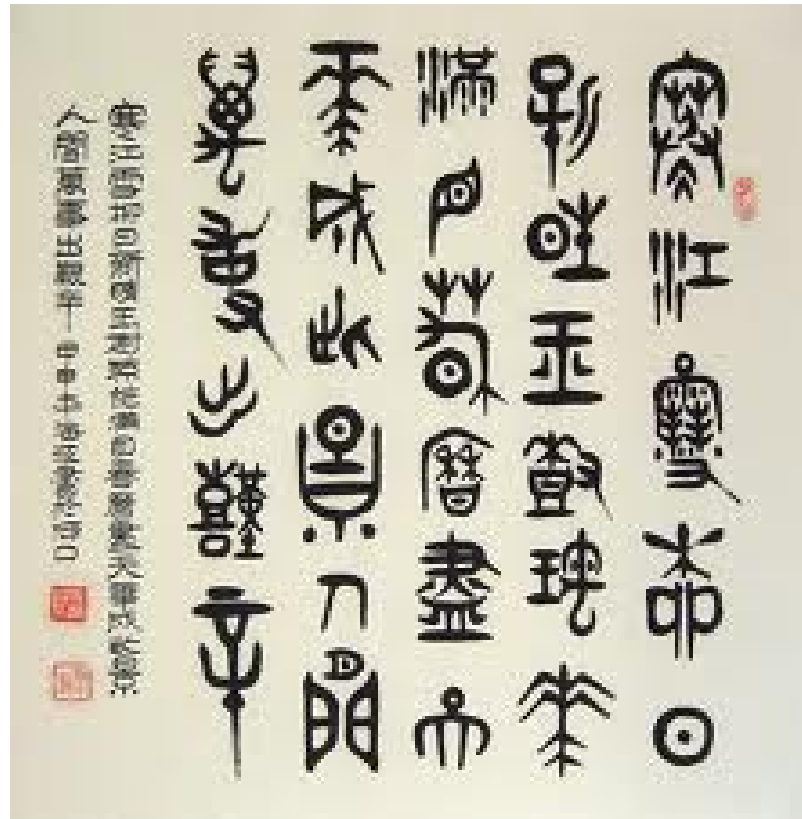 寒江雪柳日
新晴玉樹瓊花
滿目春曆盡天
華成此景人間
萬事出艱辛
寒江雪柳日新晴玉樹瓊花滿目春曆盡天華成此景
人間萬事出艱辛